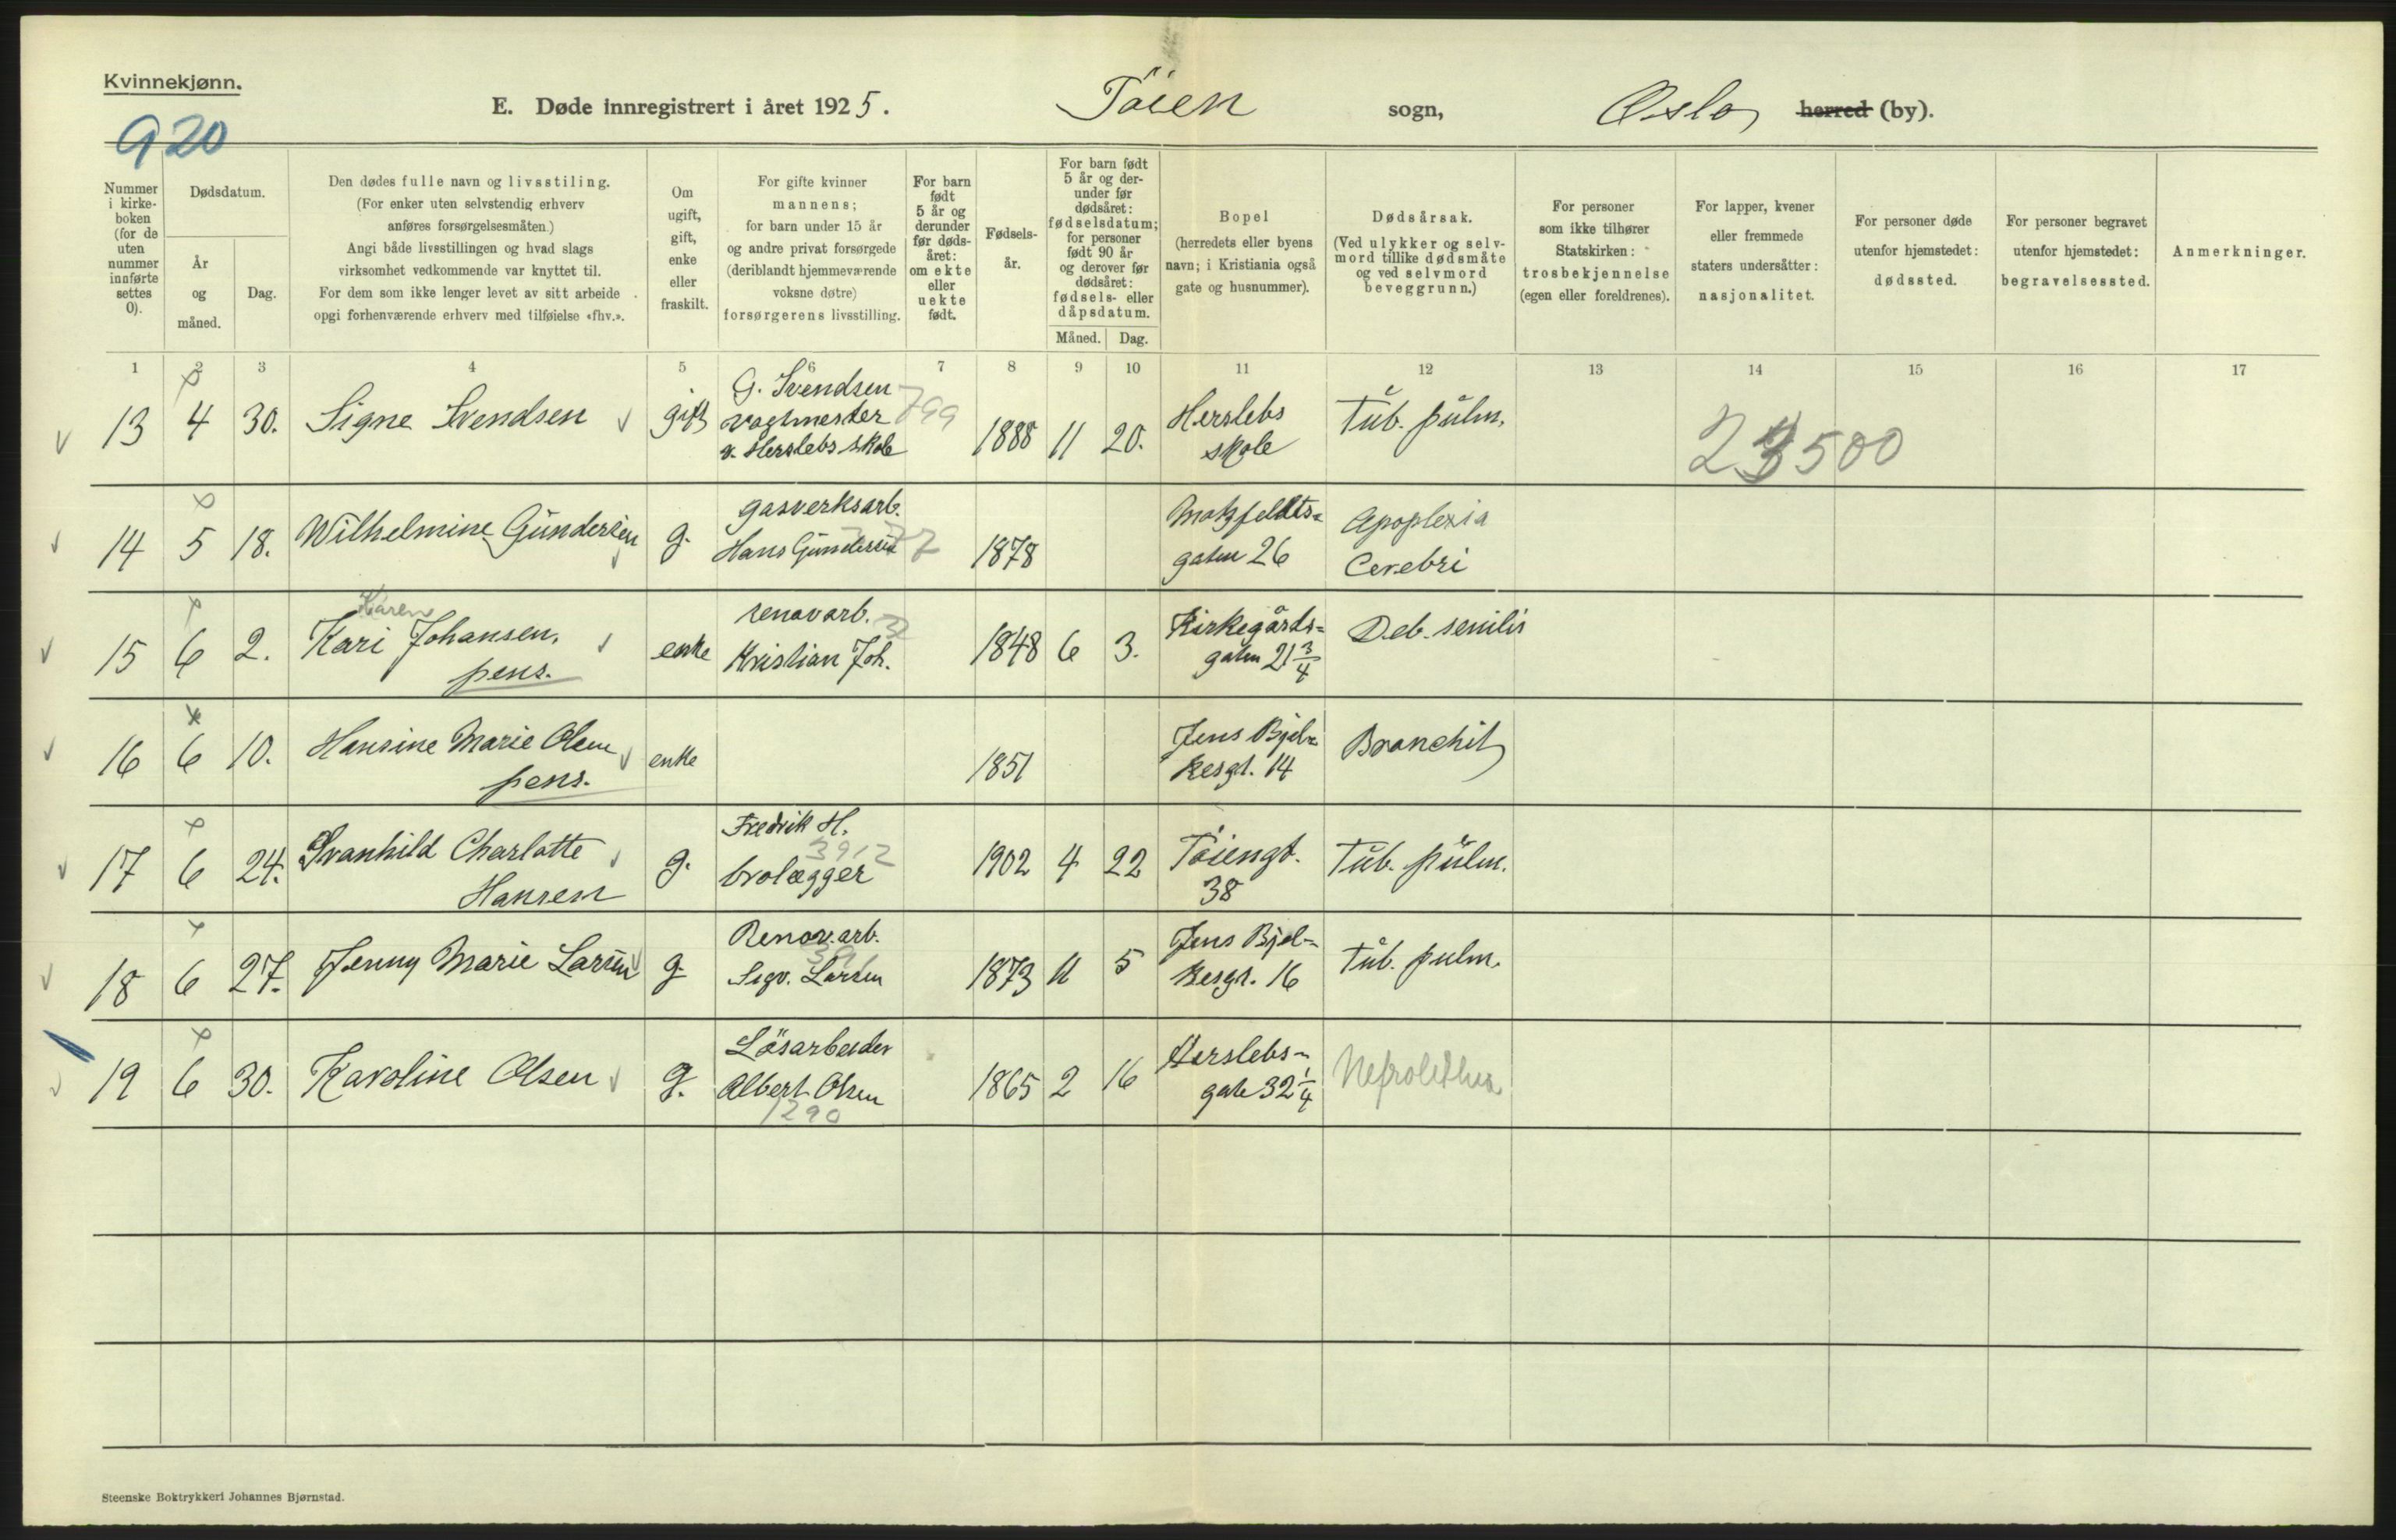 Kvinnekjønn.
E. Døde innregistrert i året 1925. Töien sogn, Oslo herred (by).
920
Nummer i kirke-boken (for de uten nummer innførte settes 0).
Dødsdatum.
År og måned.
Dag.
Den dødes fulle navn og livsstiling.
(For enker uten selvstendig erhverv
anføres forsørgelsesmåten.)
Angi både livsstillingen og hvad slags
virksomhet vedkommende var knyttet til.
For dem som ikke lenger levet av sitt arbeide
opgi forhenværende erhverv med tilføielse «fhv.».
Om ugift, gift, enke eller fraskilt.
For gifte kvinner
mannens;
for barn under 15 år
og andre privat forsørgede
(deriblandt hjemmeværende
voksne døtre)
forsørgerens livsstilling.
For barn født 5 år og derunder før døds-året: om ekte eller uekte født.
Fødsels-år.
For barn født 5 år og der-under før dødsåret: fødselsdatum; for personer født 90 år og derover før dødsåret: fødsels- eller dåpsdatum.
Måned.
Dag.
Bopel
(herredets eller byens
navn; i Kristiania også
gate og husnummer).
Dødsårsak.
(Ved ulykker og selv-
mord tillike dødsmåte
og ved selvmord
beveggrunn.)
For personer
som ikke tilhører
Statskirken:
trosbekjennelse
(egen eller foreldrenes).
For lapper, kvener
eller fremmede
staters undersåtter:
nasjonalitet.
For personer døde
utenfor hjemstedet:
dødssted.
For personer begravet
utenfor hjemstedet:
begravelsessted.
Anmerkninger.
1 2 3 4 5 6 7 8 9 10 11 12 13 14 15 16 17
13 4 30. Signe Svendsen gift G. Svendsen 799
vagtmester
v. Herslebs skole 1888 11 20. Herslebs
skole Tub. pulm.
500
14 5 18. Wilhelmine Gundersen g. gasverksarb.
Hans Gundersen 1878 Motzfeldts-
gaten 26 Apoplexia
Cerebri
15 6 2. Karen
Kari Johansen,
pens. enke renovarb.
Kristian Joh. 1848 6 3. Kirkegårds-
gaten 21 3/4 Deb. senilis
16 6 10. Hansine Marie Olsen
pens. enke 1851 Jens Bjel-
kesgt. 14 Bronchit
17 6 24. Svanhild Charlotte
Hansen g. Fredrik H.
3912
brolægger 1902 4 22 Töiengt.
38 Tub. pulm.
18 6 27. Jenny Marie Larsen g. Renov.arb.
Sigv. Larsen 1873 11 5 Jens Bjel-
kesgt. 16 Tub. pulm.
19 6 30. Karoline Olsen g. Lösarbeider
Albert Olsen
1290 1865 2 16 Herslebs-
gate 32 1/4
Steenske Boktrykkeri Johannes Bjørnstad.